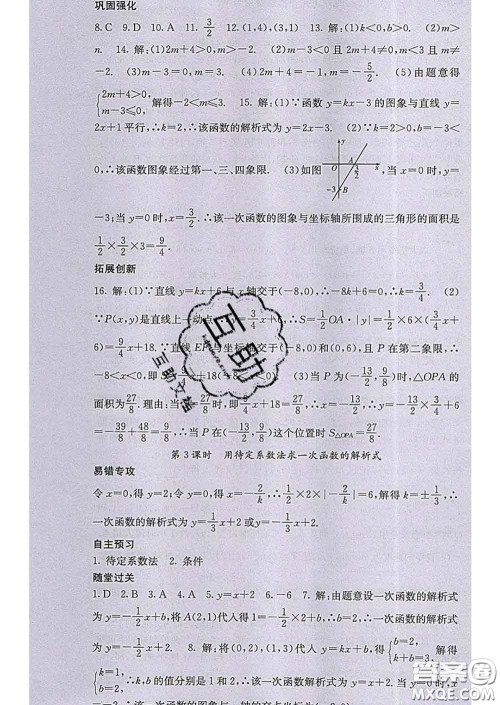 巩固强化
8. C 9. D 10. A 11. 3/2 12. (1,4),(3,1) 13. 解:(1)k<0,b<0. (2)m>
n. 14. 解:(1)2m+4>0,m>-2. (2)2m+4<0且m-3<0,m<-2. (3)m-3=0,m=3. (4)m=-5/2. (5)由题意得
{2m+4>0, m-3≤0, 解得-2<m≤3. 15. 解:(1)∵函数y=kx-3的图象与直线y=
2x+1平行,∴k=2,∴该函数的解析式为y=2x-3. (2)∵k=2>0,b=-3<
0,∴该函数图象经过第一、三、四象限. (3)如图,当x=0时,y=
y O A 3/2 x -3 B
-3;当y=0时,x=3/2.∴该一次函数的图象与坐标轴所围成的三角形的面积是
1/2×3/2×3=9/4.
拓展创新
16. 解:(1)∵直线y=kx+6与x轴交于(-8,0),∴-8k+6=0,∴k=3/4. (2)
∵P(x,y)是直线上一动点,∴y=3/4x+6,∴S=1/2OA·|y|=1/2×6×(3/4x+
6)=9/4x+18.∵直线EF与坐标轴交于(-8,0)和(0,6),且P在第二象限,∴
-8<x<0,即 x+18(-8<x<0). (3)当P为(-13/2,9/8)时,△OPA的
面积为27/8.理由:当 27/8时,即9/4x+18=27/8,∴x=-13/2,∴y=3/4x+6
=-39/8+48/8=9/8,∴当P在(-13/2,9/8)这个位置时S△OPA=27/8.
第3课时 用待定系数法求一次函数的解析式
易错专攻
令x=0,得y=2;令y=0,得x=-2/k,∴1/2×2×|-2/k|=6,解得k=±1/3,∴
一次函数的解析式为y=1/3x+2或y=-1/3x+2.
自主预习
1. 待定系数法 2. 条件
随堂过关
1. D 2. B 3. A 4. D 5. y=x+2 6. -6 7. 解:由题意设一次函数的解析式
为y=-1/2x+b,将A(2,1)代入得1=-1/2×2+b,∴b=2,∴一次函数的解析式
为y=-1/2x+2. 8. 解:将(0,2),(1,3)代入y=kx+b,得{b=2, k+b=3, 解得
{k=1, b=2, ∴k,b的值分别是1和2,∴该一次函数的解析式为y=x+2.
互助
互助文档
答案圈
MXQE.COM